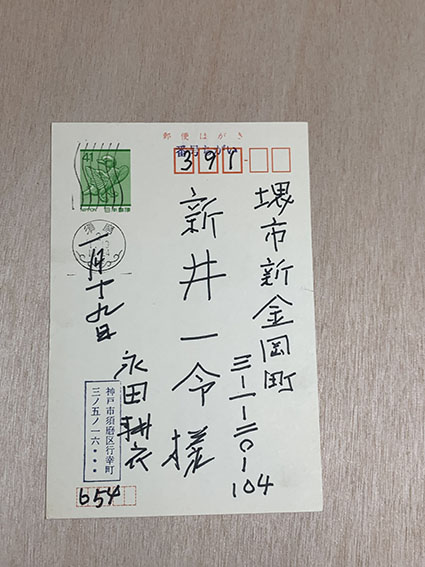 郵便はがき
番号ちがい
391
41
NIPPON 日本郵便
須磨
堺市新金岡町
三-一-二〇-104
新井一令様
一月十九日
永田耕衣
神戸市須磨区行幸町
三ノ五ノ一六・・・
654